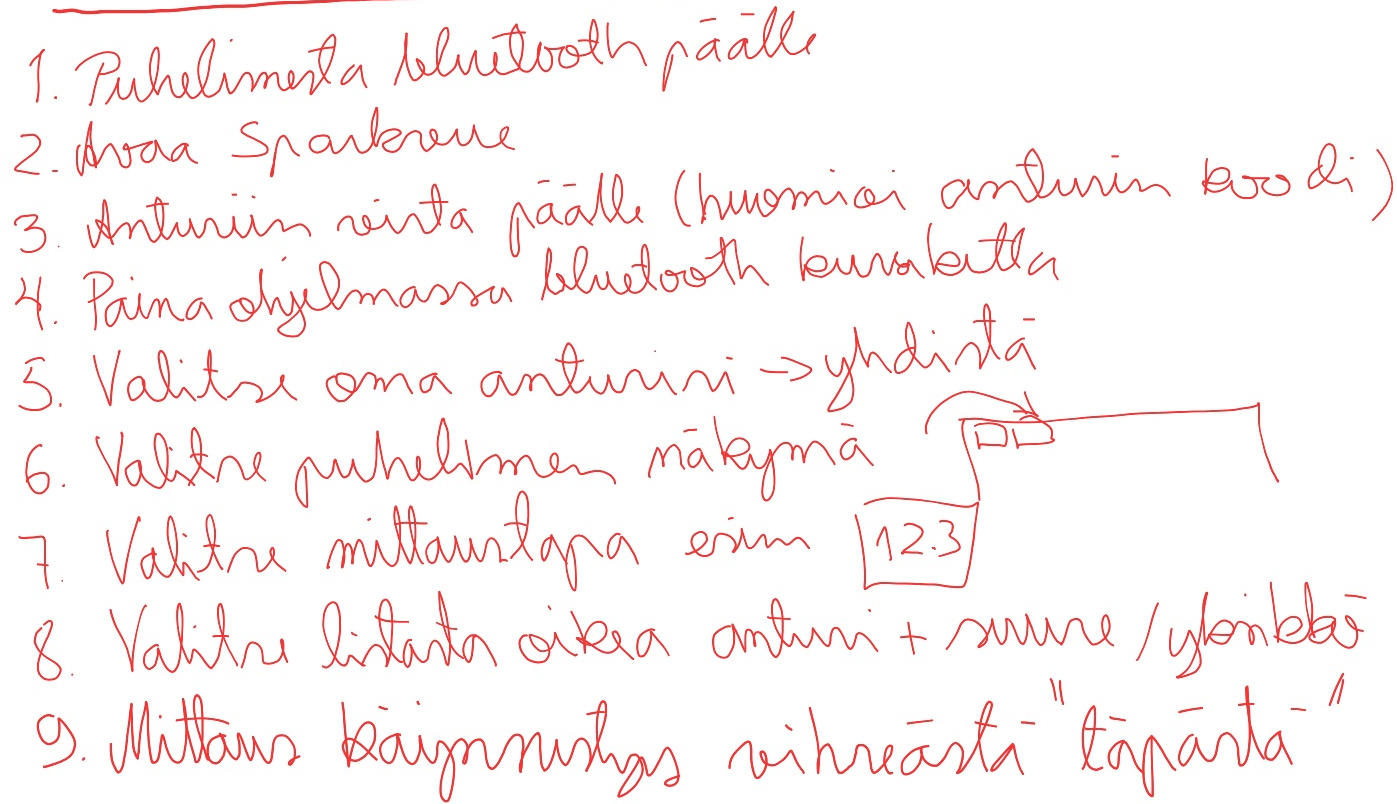 1. Puhelimesta bluetooth päälle
2. Avaa Sparkvue
3. Anturiin virta päälle (huomioi anturin koodi)
4. Paina ohjelmassa bluetooth kuvaketta
5. Valitse oma anturini → yhdistä
6. Valitse puhelimen näkymä
7. Valitse mittaustapa esim 12.3
8. Valitse listasta oikea anturi + suure / yksikkö
9. Mittaus käynnistyys vihreästä "täpästä"